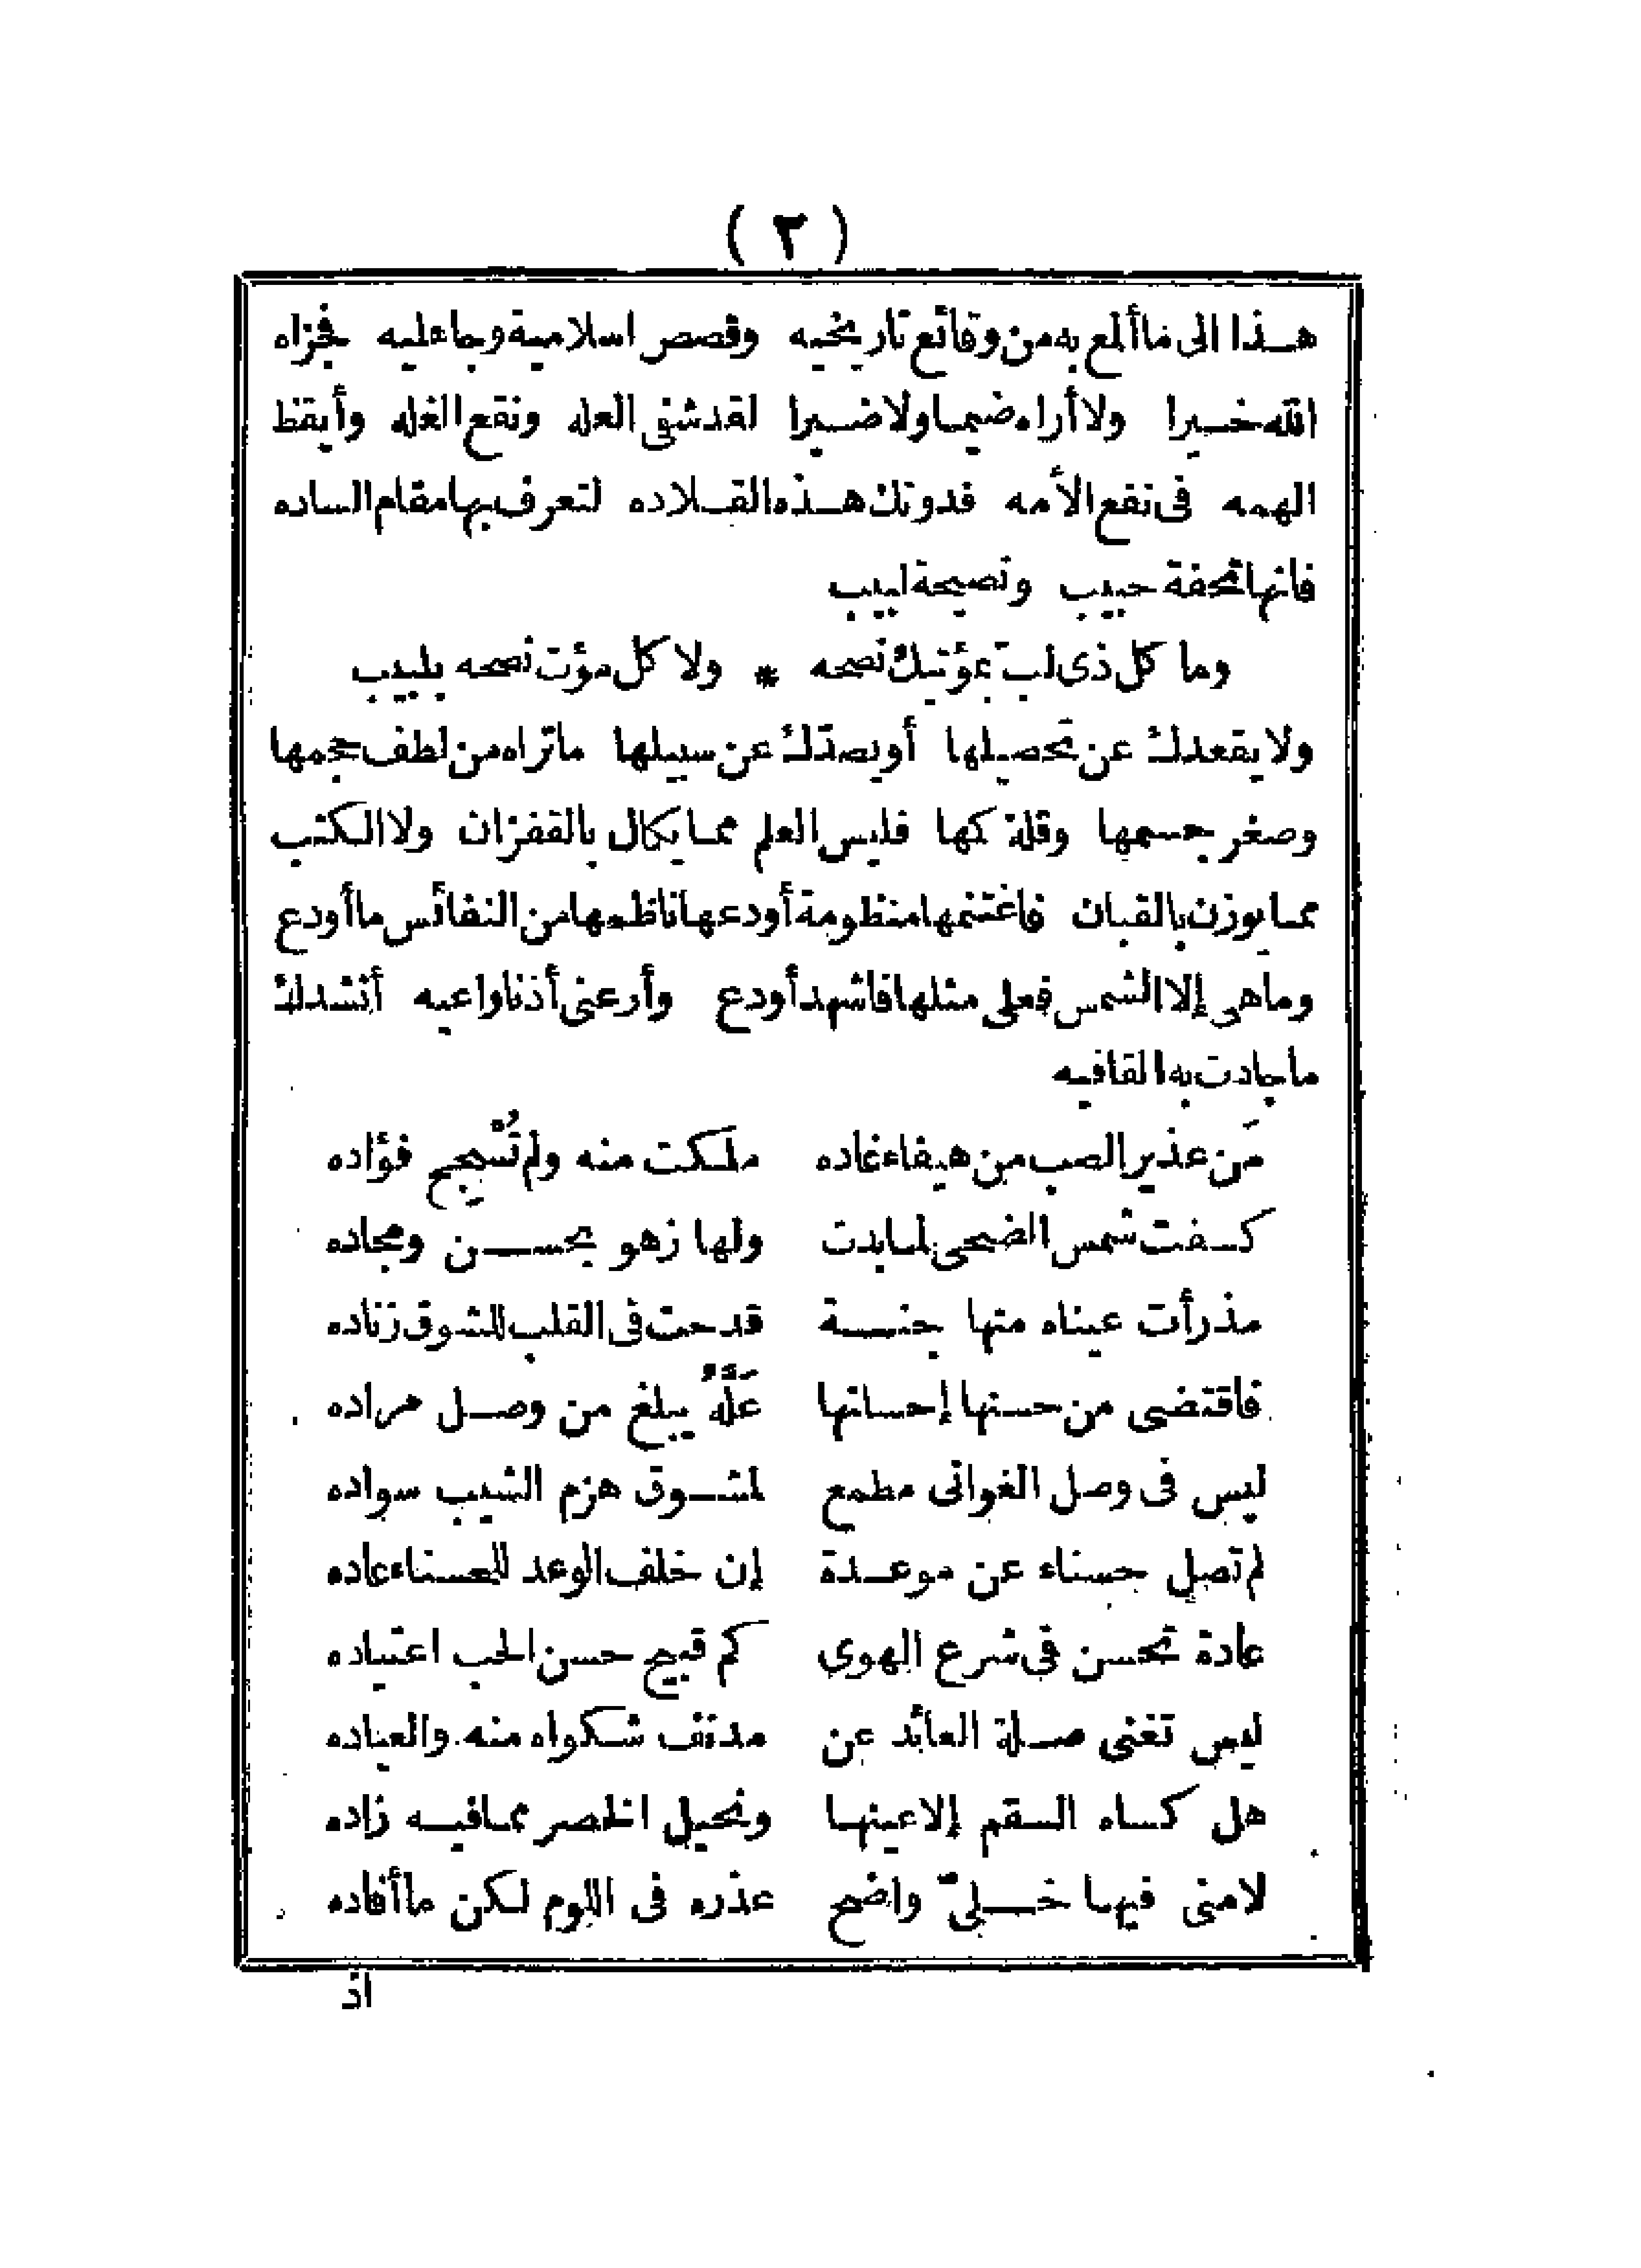 ( ٣ )
هذا الى ما ألمع به من وقائع تاريخيه وقصص اسلامية وجاعليه فجزاه
الله خيرا ولا أراه ضيما ولا ضيرا لقد شفى العله ونقع الغله وأيقظ
الهمه فى نفع الأمه فدونك هذه القلاده لتعرف بها مقام الساده
فانها تحفة حبيب ونصيحة لبيب
وما كل ذى لبّ بمؤتيك نصحه * ولا كل مؤت نصحه بلبيب
ولا يقعدك عن تحصيلها أو يصدّك عن سبيلها ما تراه من لطف حجمها
وصغر جسمها وقلة كمها فليس العلم مما يكال بالقفزان ولا الكتب
مما يوزن بالقبان فاغتنمها منظومة أودعها ناظمها من النفائس ما أودع
وما هى إلا الشمس فعلى مثلها فاشهد أودع وأرعنى أذنا واعيه أنشدك
ما جادت به القافيه
مَن عذير الصب من هيفاء غاده ملكت منه ولم تُسْجِح فؤاده
كسفت شمس الضحى لما بدت ولها زهو بحسن ومجاده
مذ رأت عيناه منها جنة قدحت فى القلب للشوق زناده
فاقتضى من حسنها إحسانها عَلَّهُ يبلغ من وصل مراده
ليس فى وصل الغوانى مطمع لمشوق هزم الشيب سواده
لم تصل حسناء عن موعدة إن خلف الوعد للحسناء عاده
عادة تحسن فى شرع الهوى كم قبيح حسن الحب اعتياده
ليس تغنى صلة العائد عن مدنف شكواه منه والعياده
هل كساه السقم إلا عينها ونحيل الخصر مما فيه زاده
لامنى فيها خلىّ واضح عذره فى اللوم لكن ما أفاده
اذ